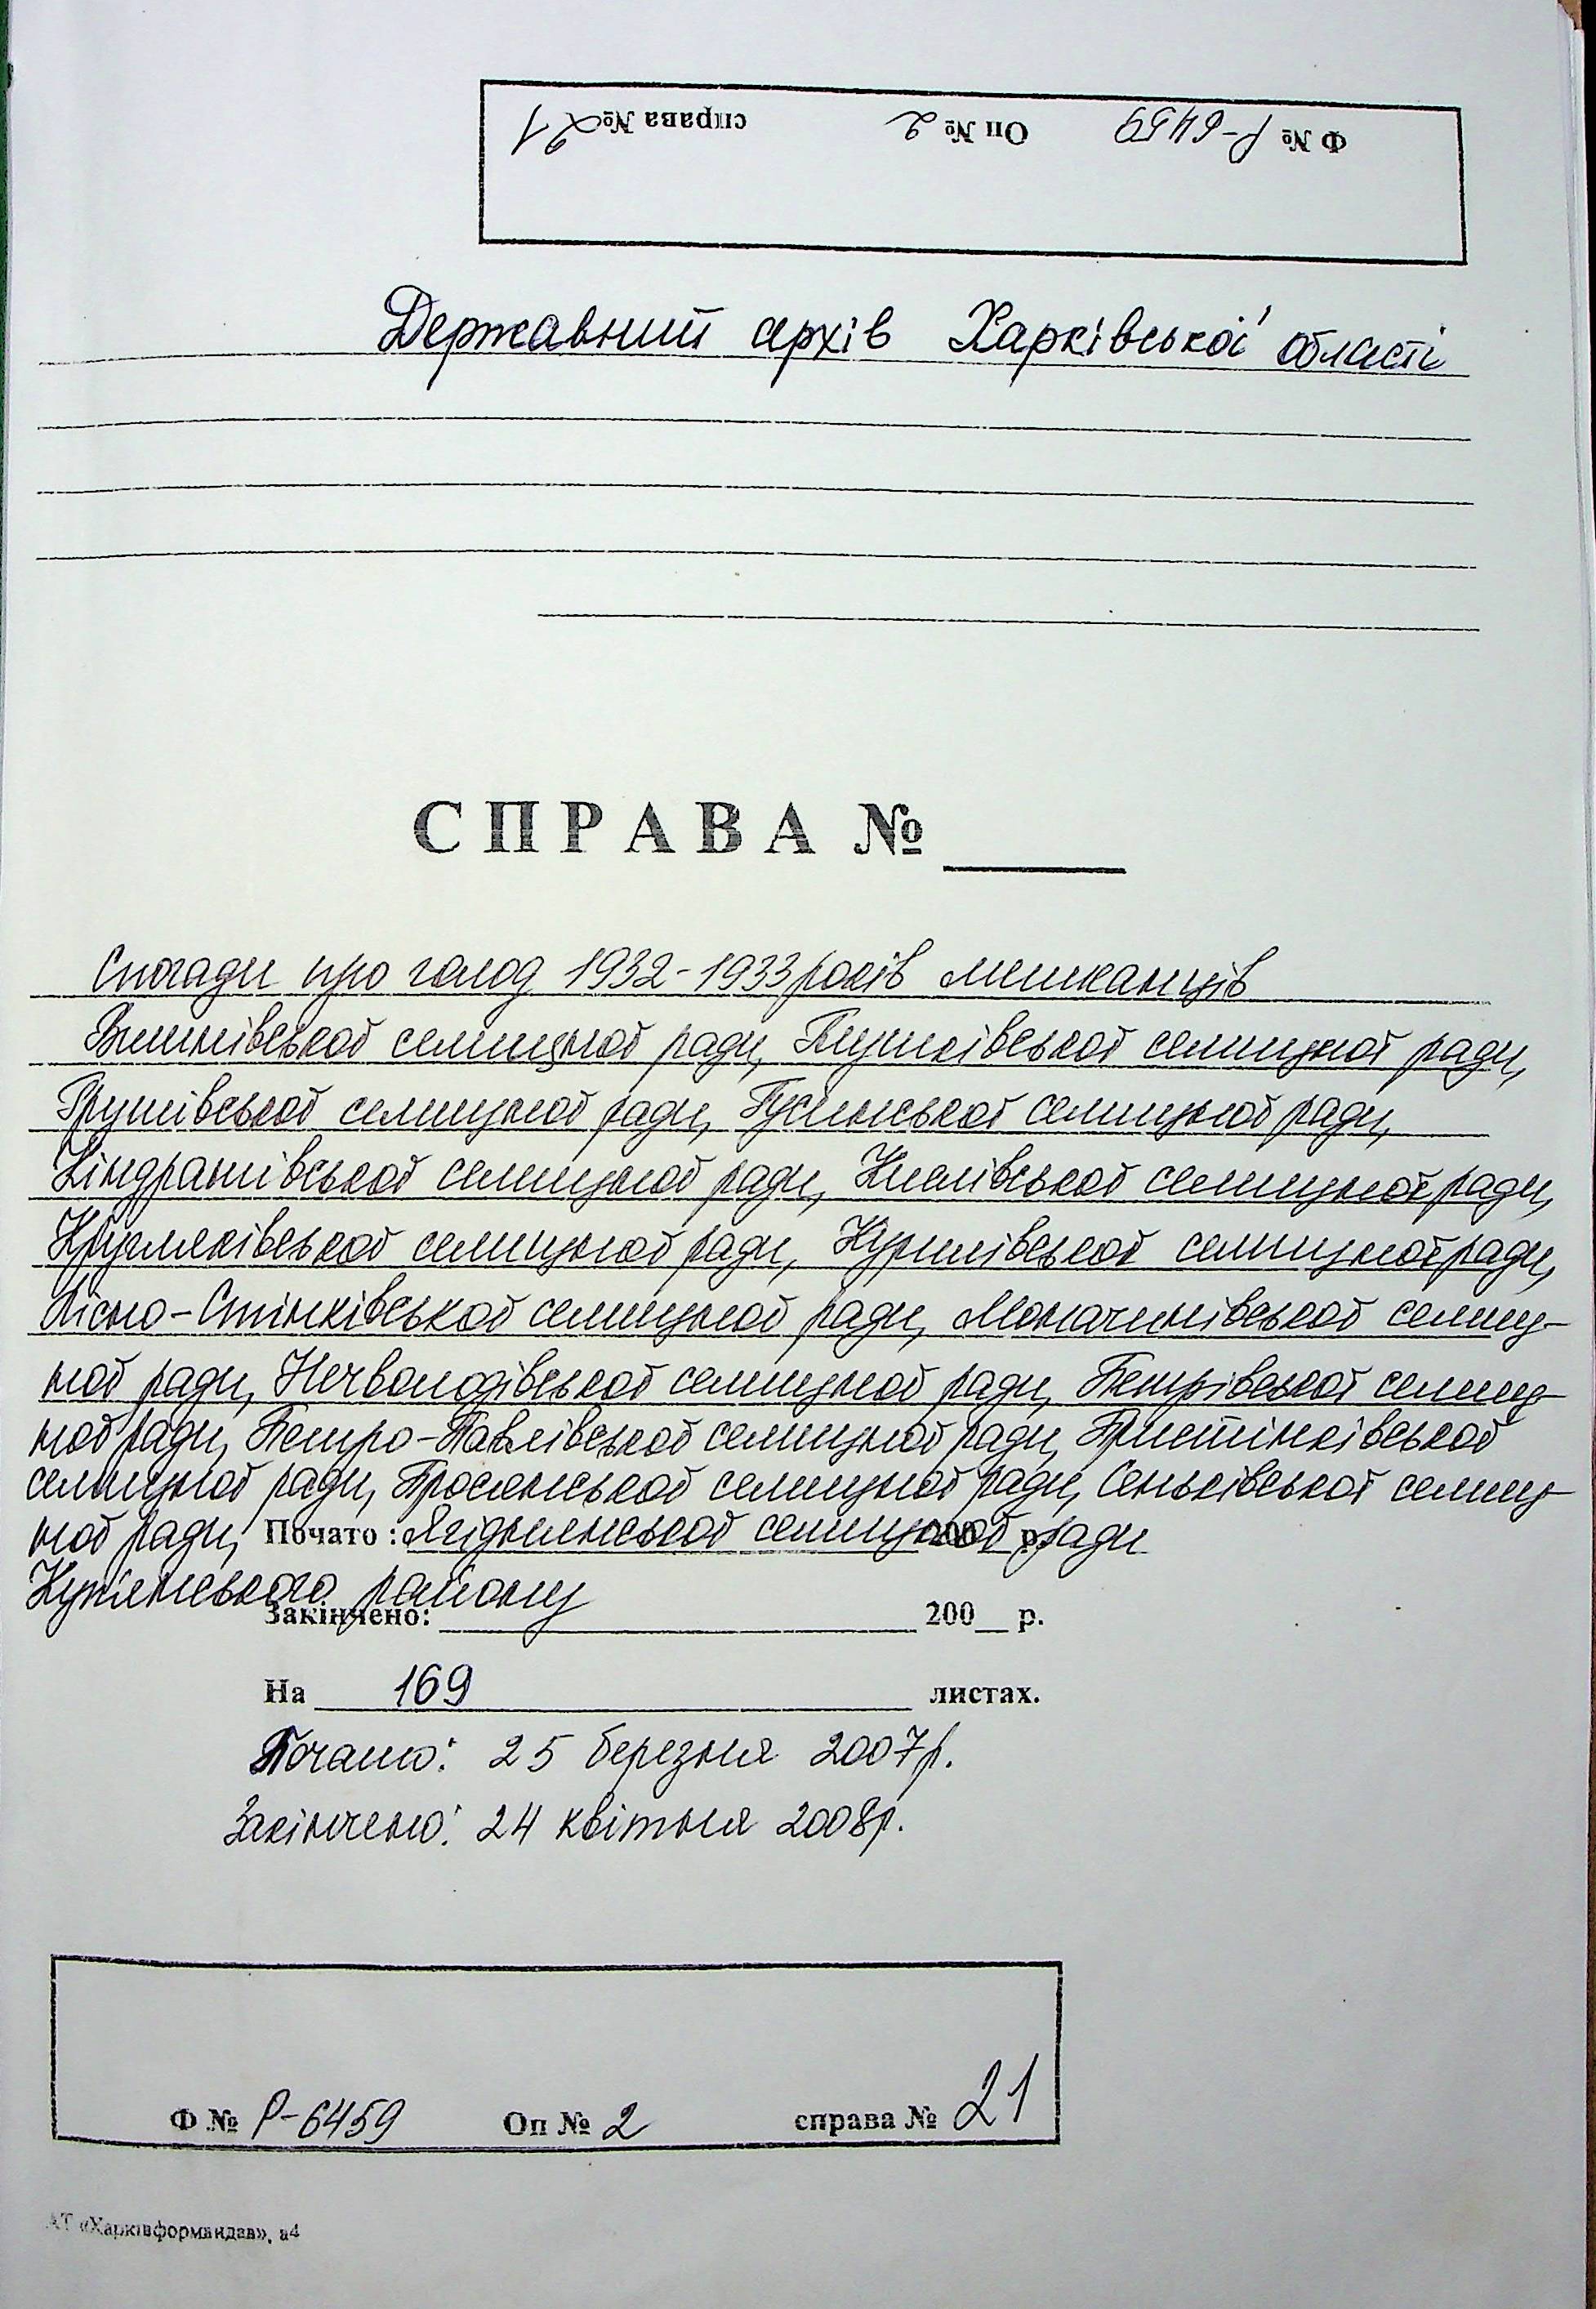 Ф № Р-6459 Оп № 2 справа № 21
Державний архів Харківської області
СПРАВА №
Спогади про голод 1932-1933 років мешканців
Вишнівської селищної ради, Глушківської селищної ради,
Грушівської селищної ради, Гусинської селищної ради,
Кіндрашівської селищної ради, Кислівської селищної ради,
Кругляківської селищної ради, Курилівської селищної ради,
Лісно-Стінківської селищної ради, Моначинівської селищ-
ної ради, Нечволодівської селищної ради, Петрівської селищ-
ної ради, Петро-Павлівської селищної ради, Пристінківської
селищної ради, Просянської селищної ради, Сеньківської селищ-
ної ради, Почато: Ягіднянської селищної ради 200 р.
Куп'янського району
Закінчено: 200__ р.
На 169 листах.
Почато: 25 березня 2007р.
Закінчено: 24 квітня 2008р.
Ф № Р-6459 Оп № 2 справа № 21
АТ «Харківформвидав», а4